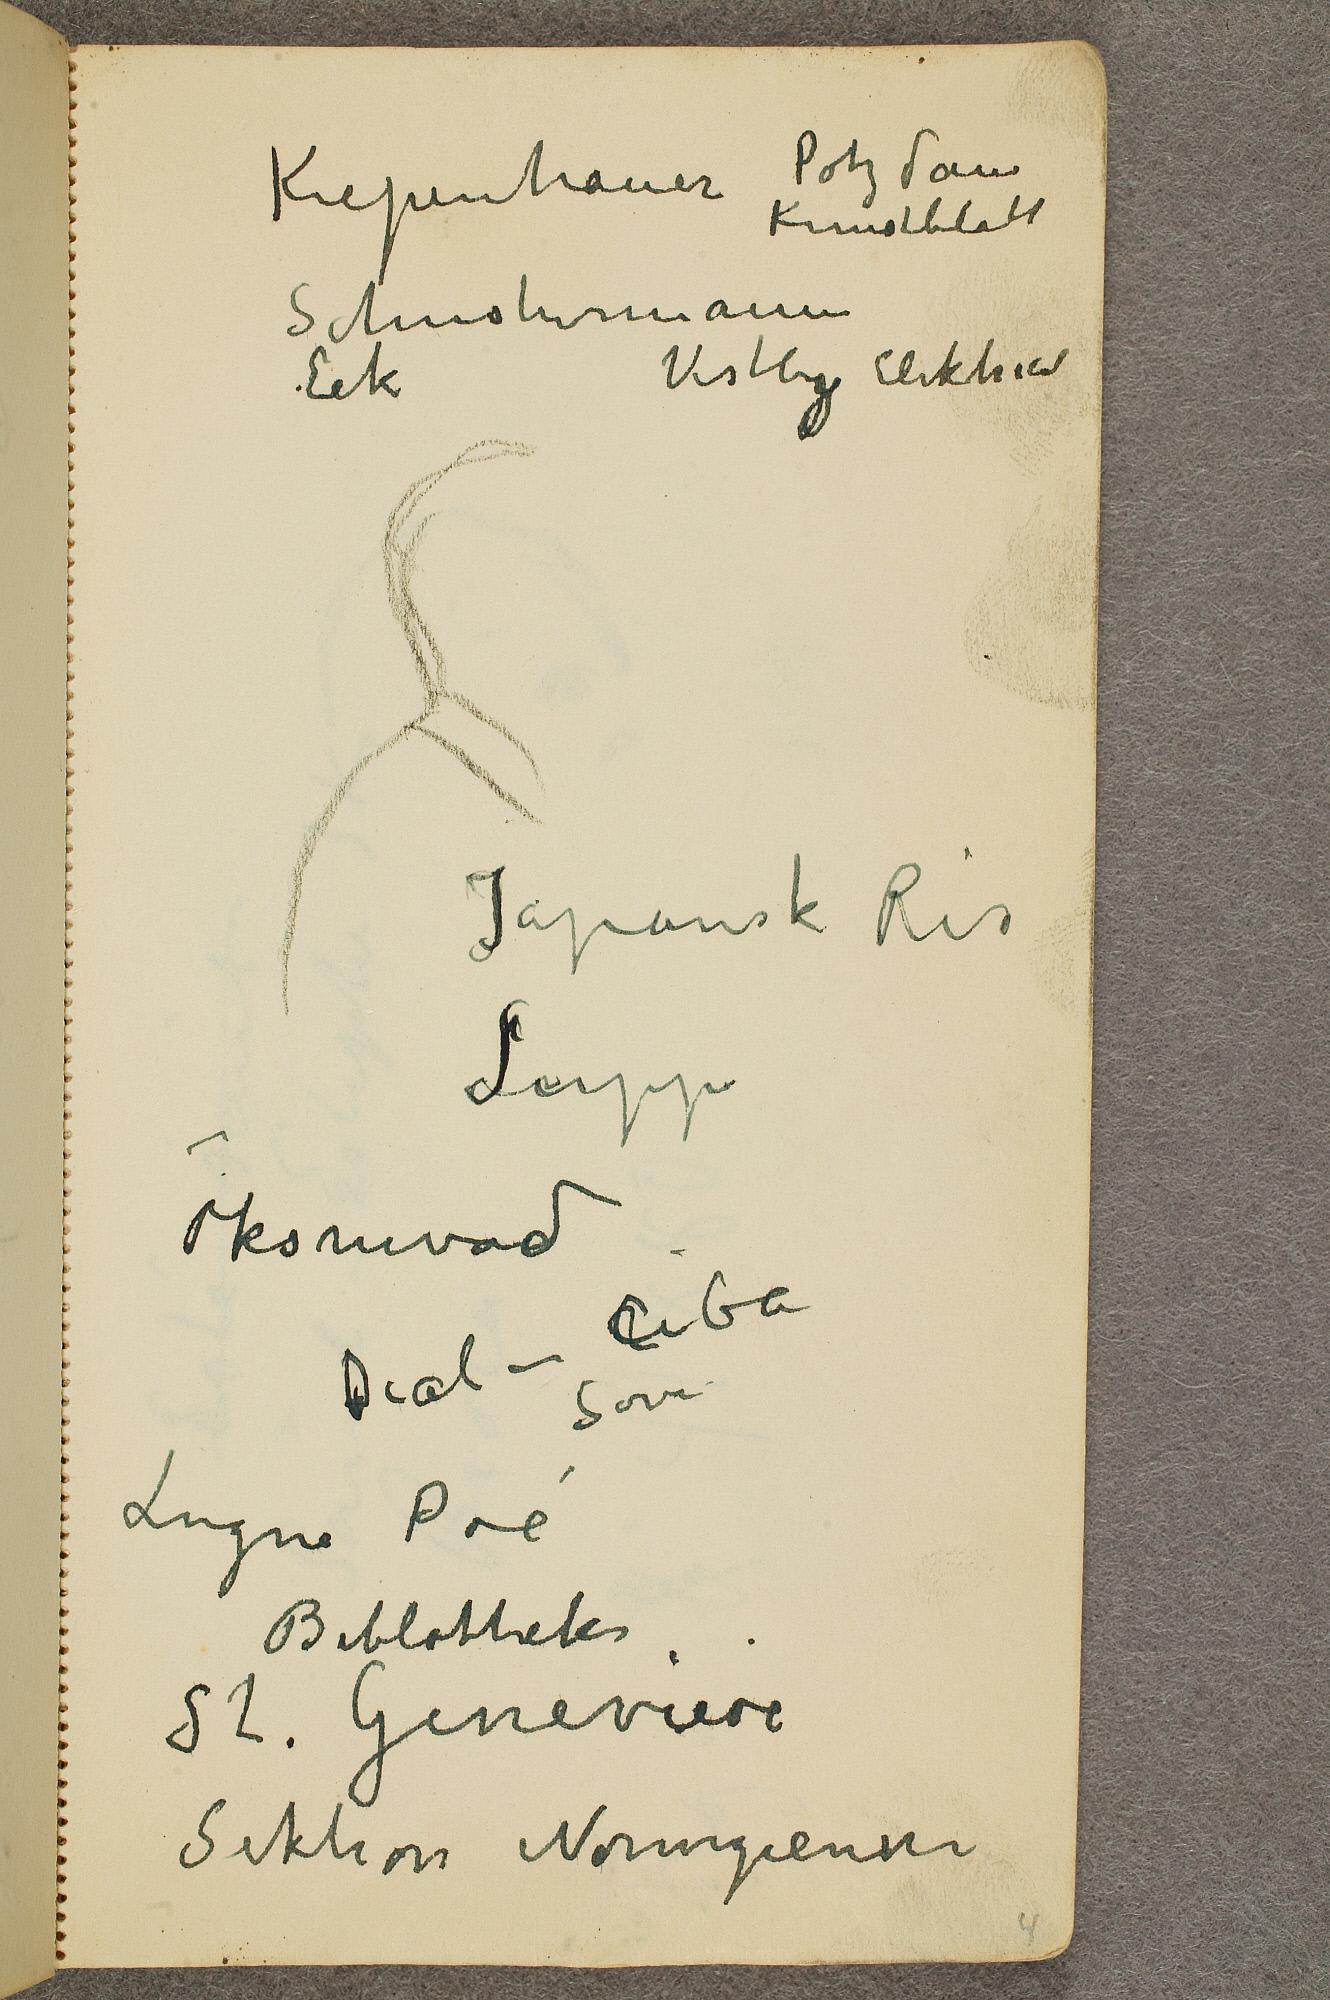 Kiepenhauer Potzdam
Kunstblatt
Schustermann
Eek Vestby Elektrici
Japansk Ris
Supp
Økonivad
Dial – Ciba
Sove
Lugne Poé
Bibliotheke
St. Genevieve
Sektion Norvegienne
4